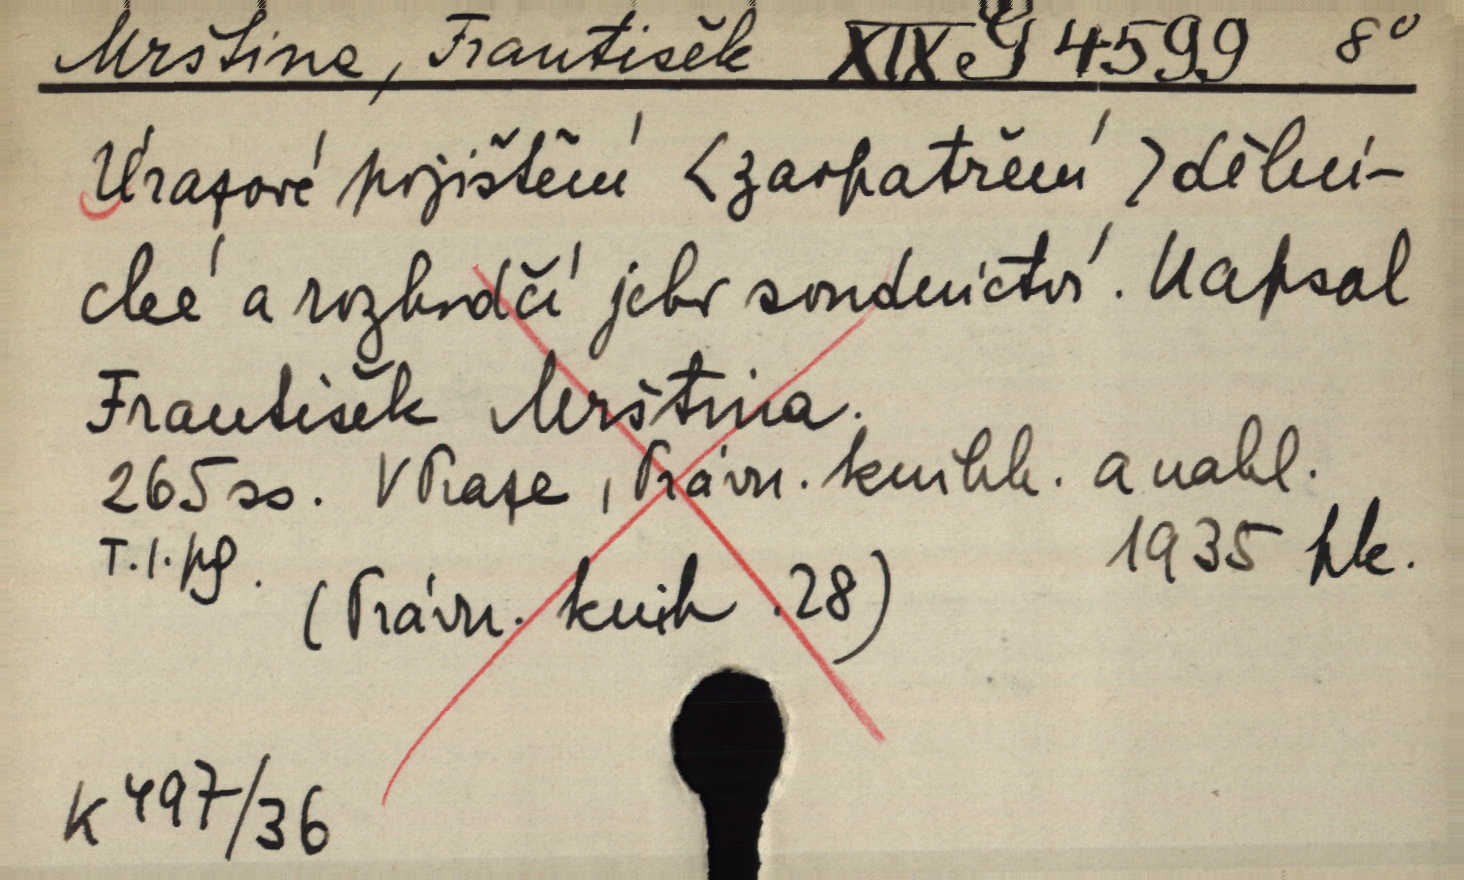 Mrština, František XIX G 4599 8°
Úrazové pojištění <zaopatření> dělni-
cké a rozhodčí jeho soudnictví. Napsal
František Mrština.
265 ss. V Praze, Právn. knihk. a nakl.
T. I. pg. 1935 pk.
(Právn. knih. 28)
K 497/36